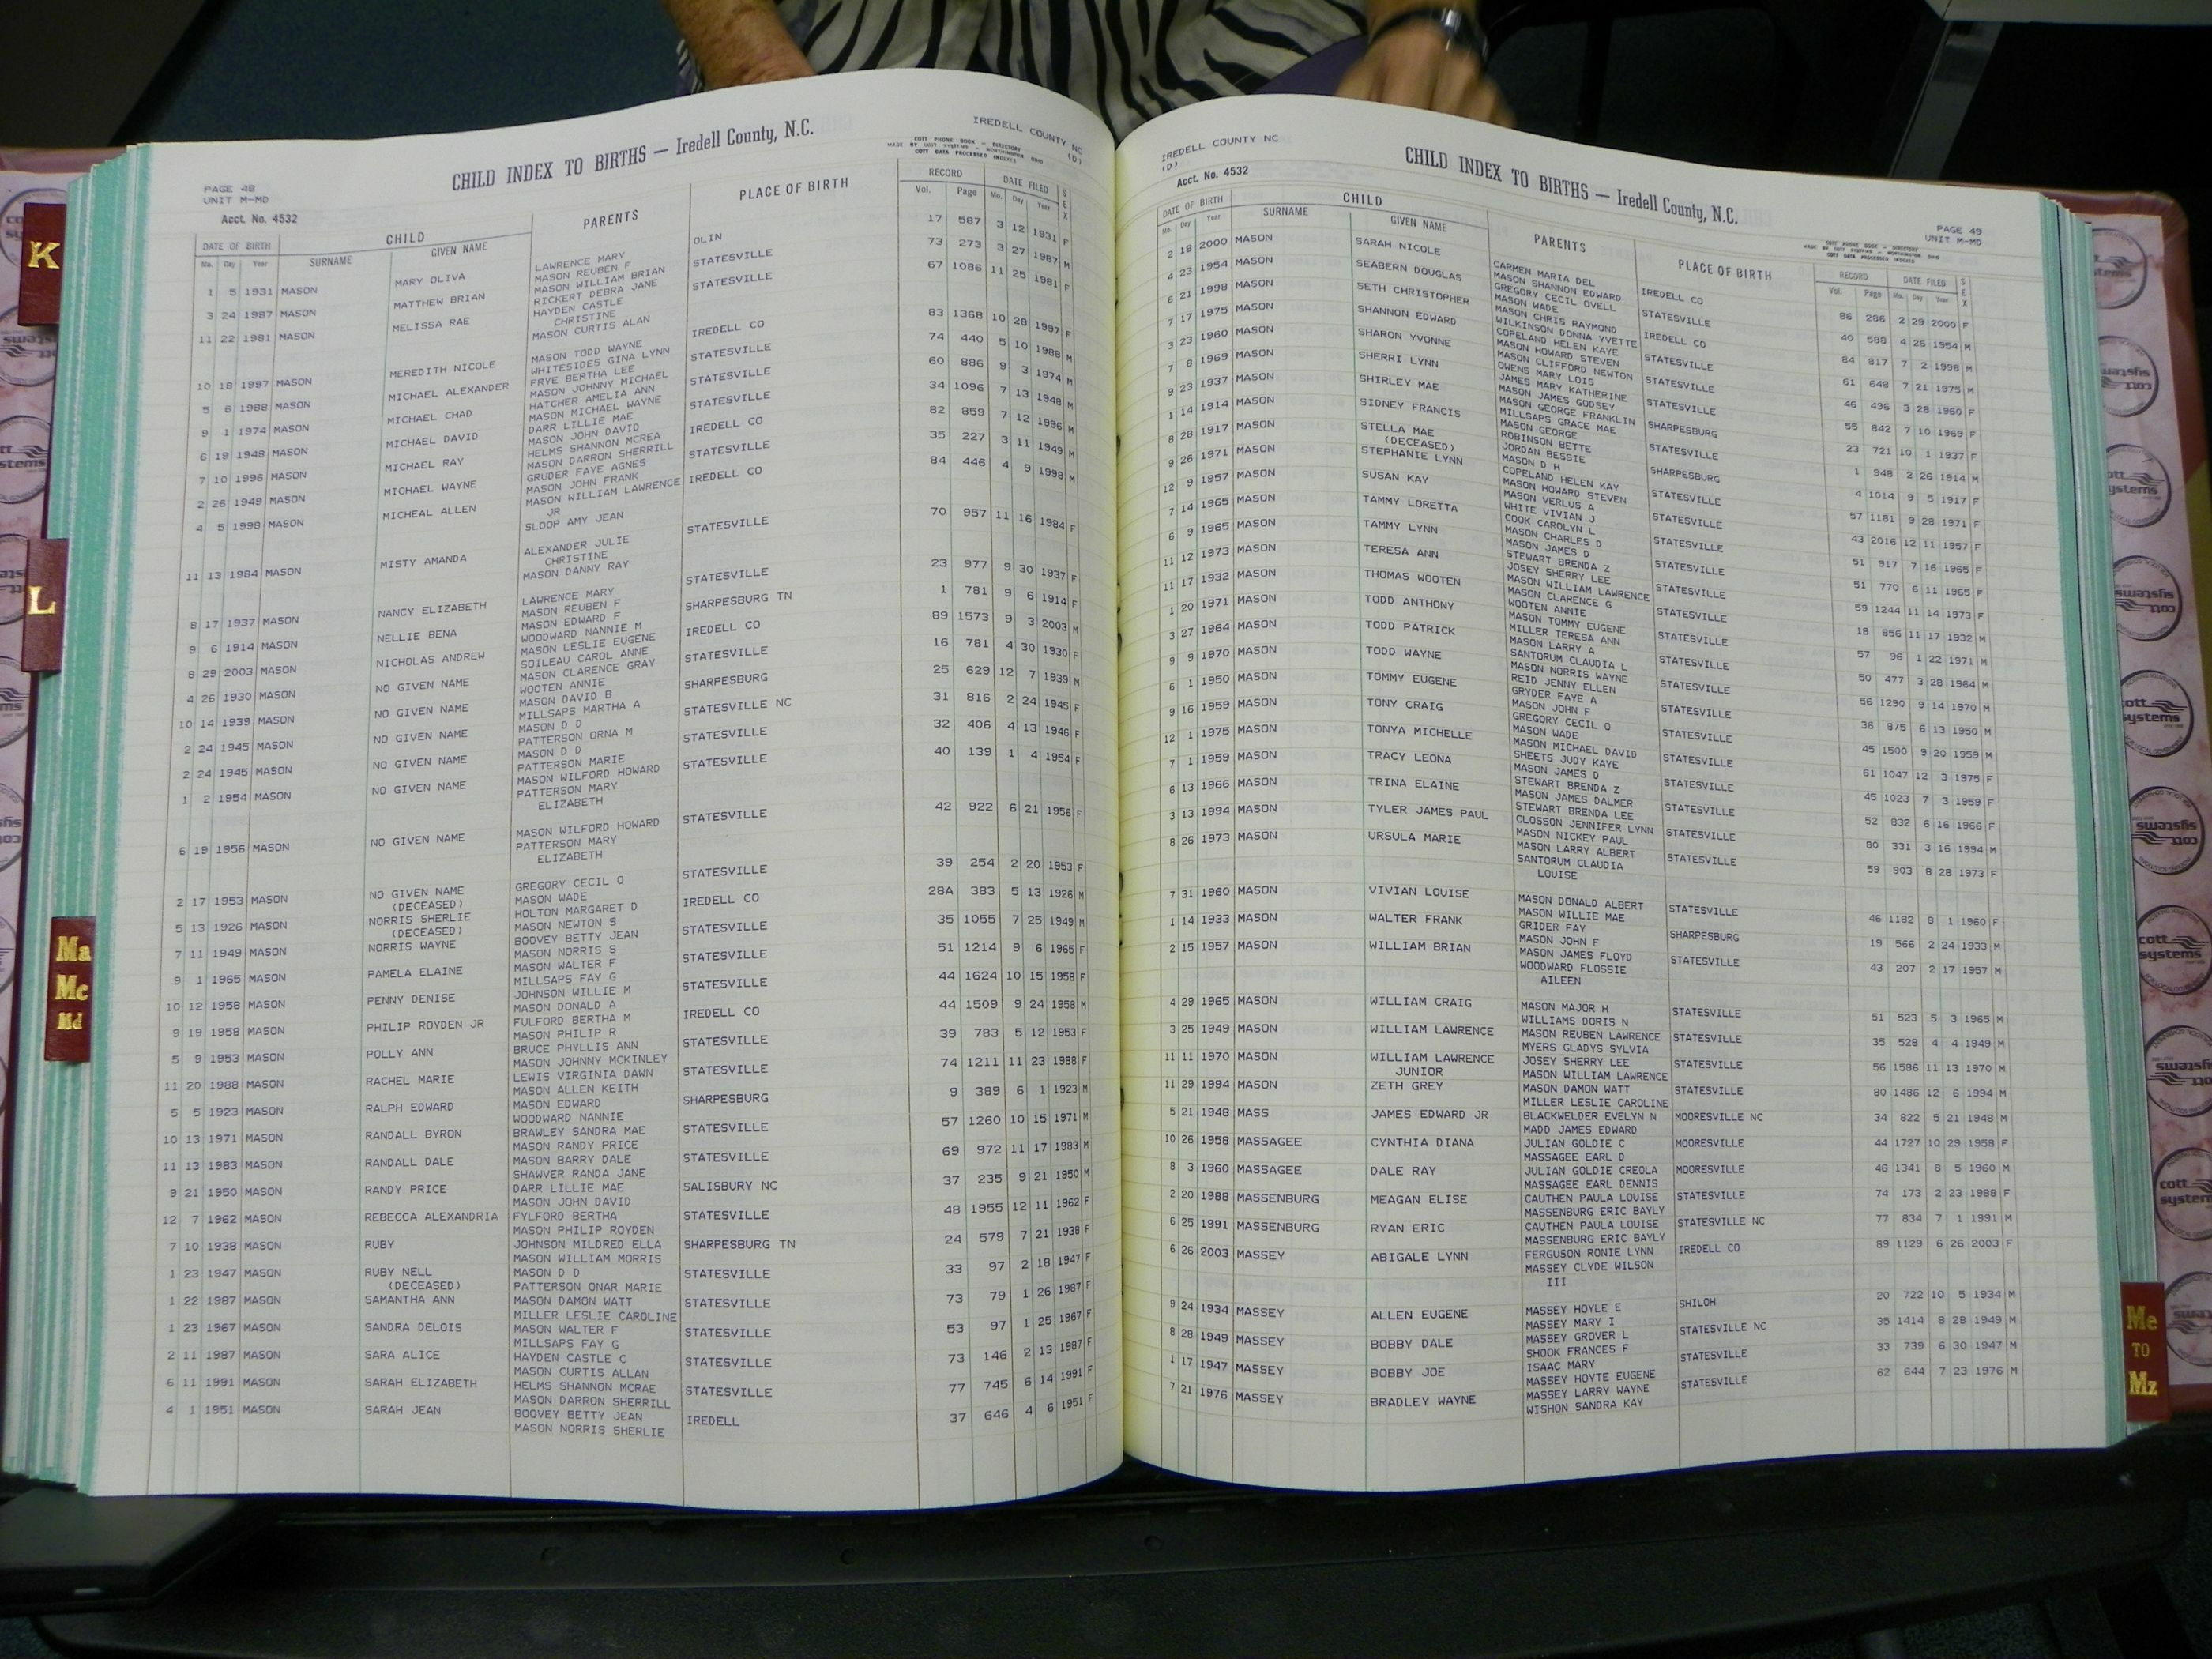 IREDELL COUNTY NC
(D)
CHILD INDEX TO BIRTHS — Iredell County, N.C.
MADE BY COTT SYSTEMS - WORTHINGTON OHIO
COTT DATA PROCESSED INDEXES
PAGE 48
UNIT M-MD
Acct. No. 4532
DATE OF BIRTH CHILD PARENTS PLACE OF BIRTH RECORD DATE FILED SEX
Mo. Day Year SURNAME GIVEN NAME Vol. Page Mo. Day Year
1 5 1931 MASON MARY OLIVA LAWRENCE MARY OLIN 17 587 3 12 1931 F
MASON REUBEN F
3 24 1987 MASON MATTHEW BRIAN MASON WILLIAM BRIAN STATESVILLE 73 273 3 27 1987 M
RICKERT DEBRA JANE
11 22 1981 MASON MELISSA RAE HAYDEN CASTLE STATESVILLE 67 1086 11 25 1981 F
CHRISTINE
MASON CURTIS ALAN
10 18 1997 MASON MEREDITH NICOLE MASON TODD WAYNE IREDELL CO 83 1368 10 28 1997 F
WHITESIDES GINA LYNN
5 6 1988 MASON MICHAEL ALEXANDER FRYE BERTHA LEE STATESVILLE 74 440 5 10 1988 M
MASON JOHNNY MICHAEL
9 1 1974 MASON MICHAEL CHAD HATCHER AMELIA ANN STATESVILLE 60 886 9 3 1974 M
MASON MICHAEL WAYNE
6 19 1948 MASON MICHAEL DAVID DARR LILLIE MAE STATESVILLE 34 1096 7 13 1948 M
MASON JOHN DAVID
7 10 1996 MASON MICHAEL RAY HELMS SHANNON MCREA IREDELL CO 82 859 7 12 1996 M
MASON DARRON SHERRILL
2 26 1949 MASON MICHAEL WAYNE GRUDER FAYE AGNES STATESVILLE 35 227 3 11 1949 M
MASON JOHN FRANK
4 5 1998 MASON MICHEAL ALLEN MASON WILLIAM LAWRENCE IREDELL CO 84 446 4 9 1998 M
JR
SLOOP AMY JEAN
11 13 1984 MASON MISTY AMANDA ALEXANDER JULIE STATESVILLE 70 957 11 16 1984 F
CHRISTINE
MASON DANNY RAY
8 17 1937 MASON NANCY ELIZABETH LAWRENCE MARY STATESVILLE 23 977 9 30 1937 F
MASON REUBEN F
9 6 1914 MASON NELLIE BENA MASON EDWARD F SHARPESBURG TN 1 781 9 6 1914 F
WOODWARD NANNIE M
8 29 2003 MASON NICHOLAS ANDREW MASON LESLIE EUGENE IREDELL CO 89 1573 9 3 2003 M
SOILEAU CAROL ANNE
4 26 1930 MASON NO GIVEN NAME MASON CLARENCE GRAY STATESVILLE 16 781 4 30 1930 F
WOOTEN ANNIE
10 14 1939 MASON NO GIVEN NAME MASON DAVID B SHARPESBURG 25 629 12 7 1939 M
MILLSAPS MARTHA A
2 24 1945 MASON NO GIVEN NAME MASON D D STATESVILLE NC 31 816 2 24 1945 F
PATTERSON ORNA M
2 24 1945 MASON NO GIVEN NAME MASON D D STATESVILLE 32 406 4 13 1946 F
PATTERSON MARIE
1 2 1954 MASON NO GIVEN NAME MASON WILFORD HOWARD STATESVILLE 40 139 1 4 1954 F
PATTERSON MARY
ELIZABETH
6 19 1956 MASON NO GIVEN NAME MASON WILFORD HOWARD STATESVILLE 42 922 6 21 1956 F
PATTERSON MARY
ELIZABETH
2 17 1953 MASON NO GIVEN NAME GREGORY CECIL O STATESVILLE 39 254 2 20 1953 F
(DECEASED) MASON WADE
5 13 1926 MASON NORRIS SHERLIE HOLTON MARGARET D IREDELL CO 28A 383 5 13 1926 M
(DECEASED) MASON NEWTON S
7 11 1949 MASON NORRIS WAYNE BOOVEY BETTY JEAN STATESVILLE 35 1055 7 25 1949 M
MASON NORRIS S
9 1 1965 MASON PAMELA ELAINE MASON WALTER F STATESVILLE 51 1214 9 6 1965 F
MILLSAPS FAY G
10 12 1958 MASON PENNY DENISE JOHNSON WILLIE M STATESVILLE 44 1624 10 15 1958 F
MASON DONALD A
9 19 1958 MASON PHILIP ROYDEN JR FULFORD BERTHA M IREDELL CO 44 1509 9 24 1958 M
MASON PHILIP R
5 9 1953 MASON POLLY ANN BRUCE PHYLLIS ANN STATESVILLE 39 783 5 12 1953 F
MASON JOHNNY MCKINLEY
11 20 1988 MASON RACHEL MARIE LEWIS VIRGINIA DAWN STATESVILLE 74 1211 11 23 1988 F
MASON ALLEN KEITH
5 5 1923 MASON RALPH EDWARD MASON EDWARD SHARPESBURG 9 389 6 1 1923 M
WOODWARD NANNIE
10 13 1971 MASON RANDALL BYRON BRAWLEY SANDRA MAE STATESVILLE 57 1260 10 15 1971 M
MASON RANDY PRICE
11 13 1983 MASON RANDALL DALE MASON BARRY DALE STATESVILLE 69 972 11 17 1983 M
SHAWVER RANDA JANE
9 21 1950 MASON RANDY PRICE DARR LILLIE MAE SALISBURY NC 37 235 9 21 1950 M
MASON JOHN DAVID
12 7 1962 MASON REBECCA ALEXANDRIA FYLFORD BERTHA STATESVILLE 48 1955 12 11 1962 F
MASON PHILIP ROYDEN
7 10 1938 MASON RUBY JOHNSON MILDRED ELLA SHARPESBURG TN 24 579 7 21 1938 F
MASON WILLIAM MORRIS
1 23 1947 MASON RUBY NELL MASON D D STATESVILLE 33 97 2 18 1947 F
(DECEASED) PATTERSON ONAR MARIE
1 22 1987 MASON SAMANTHA ANN MASON DAMON WATT STATESVILLE 73 79 1 26 1987 F
MILLER LESLIE CAROLINE
1 23 1967 MASON SANDRA DELOIS MASON WALTER F STATESVILLE 53 97 1 25 1967 F
MILLSAPS FAY G
2 11 1987 MASON SARA ALICE HAYDEN CASTLE C STATESVILLE 73 146 2 13 1987 F
MASON CURTIS ALLAN
6 11 1991 MASON SARAH ELIZABETH HELMS SHANNON MCRAE STATESVILLE 77 745 6 14 1991 F
MASON DARRON SHERRILL
4 1 1951 MASON SARAH JEAN BOOVEY BETTY JEAN IREDELL 37 646 4 6 1951 F
MASON NORRIS SHERLIE
IREDELL COUNTY NC
(D)
Acct. No. 4532
CHILD INDEX TO BIRTHS — Iredell County, N.C.
PAGE 49
UNIT M-MD
COTT DATA PROCESSED INDEXES
DATE OF BIRTH CHILD PARENTS PLACE OF BIRTH RECORD DATE FILED SEX
Mo. Day Year SURNAME GIVEN NAME Vol. Page Mo. Day Year
2 18 2000 MASON SARAH NICOLE CARMEN MARIA DEL IREDELL CO 86 286 2 29 2000 F
MASON SHANNON EDWARD
4 23 1954 MASON SEABERN DOUGLAS GREGORY CECIL OVELL STATESVILLE 40 588 4 26 1954 M
MASON WADE
6 21 1998 MASON SETH CHRISTOPHER MASON CHRIS RAYMOND IREDELL CO 84 817 7 2 1998 M
WILKINSON DONNA YVETTE
7 17 1975 MASON SHANNON EDWARD COPELAND HELEN KAYE STATESVILLE 61 648 7 21 1975 M
MASON HOWARD STEVEN
3 23 1960 MASON SHARON YVONNE MASON CLIFFORD NEWTON STATESVILLE 46 496 3 28 1960 F
OWENS MARY LOIS
7 8 1969 MASON SHERRI LYNN JAMES MARY KATHERINE STATESVILLE 55 842 7 10 1969 F
MASON JAMES GODSEY
9 23 1937 MASON SHIRLEY MAE MASON GEORGE FRANKLIN SHARPESBURG 23 721 10 1 1937 F
MILLSAPS GRACE MAE
1 14 1914 MASON SIDNEY FRANCIS MASON GEORGE STATESVILLE 1 948 2 26 1914 M
ROBINSON BETTE
8 28 1917 MASON STELLA MAE JORDAN BESSIE SHARPESBURG 4 1014 9 5 1917 F
(DECEASED) MASON D H
9 26 1971 MASON STEPHANIE LYNN COPELAND HELEN KAY STATESVILLE 57 1181 9 28 1971 F
MASON HOWARD STEVEN
12 9 1957 MASON SUSAN KAY MASON VERLUS A STATESVILLE 43 2016 12 11 1957 F
WHITE VIVIAN J
7 14 1965 MASON TAMMY LORETTA COOK CAROLYN L STATESVILLE 51 917 7 16 1965 F
MASON CHARLES D
6 9 1965 MASON TAMMY LYNN MASON JAMES D STATESVILLE 51 770 6 11 1965 F
STEWART BRENDA Z
11 12 1973 MASON TERESA ANN JOSEY SHERRY LEE STATESVILLE 59 1244 11 14 1973 F
MASON WILLIAM LAWRENCE
11 17 1932 MASON THOMAS WOOTEN MASON CLARENCE G STATESVILLE 18 856 11 17 1932 M
WOOTEN ANNIE
1 20 1971 MASON TODD ANTHONY MASON TOMMY EUGENE STATESVILLE 57 96 1 22 1971 M
MILLER TERESA ANN
3 27 1964 MASON TODD PATRICK MASON LARRY A STATESVILLE 50 477 3 28 1964 M
SANTORUM CLAUDIA L
9 9 1970 MASON TODD WAYNE MASON NORRIS WAYNE STATESVILLE 56 1290 9 14 1970 M
REID JENNY ELLEN
6 1 1950 MASON TOMMY EUGENE GRYDER FAYE A STATESVILLE 36 875 6 13 1950 M
MASON JOHN F
9 16 1959 MASON TONY CRAIG GREGORY CECIL O STATESVILLE 45 1500 9 20 1959 M
MASON WADE
12 1 1975 MASON TONYA MICHELLE MASON MICHAEL DAVID STATESVILLE 61 1047 12 3 1975 F
SHEETS JUDY KAYE
7 1 1959 MASON TRACY LEONA MASON JAMES D STATESVILLE 45 1023 7 3 1959 F
STEWART BRENDA Z
6 13 1966 MASON TRINA ELAINE MASON JAMES DALMER STATESVILLE 52 832 6 16 1966 F
STEWART BRENDA LEE
3 13 1994 MASON TYLER JAMES PAUL CLOSSON JENNIFER LYNN STATESVILLE 80 331 3 16 1994 M
MASON NICKEY PAUL
8 26 1973 MASON URSULA MARIE MASON LARRY ALBERT STATESVILLE 59 903 8 28 1973 F
SANTORUM CLAUDIA
LOUISE
7 31 1960 MASON VIVIAN LOUISE MASON DONALD ALBERT STATESVILLE 46 1182 8 1 1960 F
MASON WILLIE MAE
1 14 1933 MASON WALTER FRANK GRIDER FAY SHARPESBURG 19 566 2 24 1933 M
MASON JOHN F
2 15 1957 MASON WILLIAM BRIAN MASON JAMES FLOYD STATESVILLE 43 207 2 17 1957 M
WOODWARD FLOSSIE
AILEEN
4 29 1965 MASON WILLIAM CRAIG MASON MAJOR H STATESVILLE 51 523 5 3 1965 M
WILLIAMS DORIS N
3 25 1949 MASON WILLIAM LAWRENCE MASON REUBEN LAWRENCE STATESVILLE 35 528 4 4 1949 M
MYERS GLADYS SYLVIA
11 11 1970 MASON WILLIAM LAWRENCE JOSEY SHERRY LEE STATESVILLE 56 1586 11 13 1970 M
JUNIOR MASON WILLIAM LAWRENCE
11 29 1994 MASON ZETH GREY MASON DAMON WATT STATESVILLE 80 1486 12 6 1994 M
MILLER LESLIE CAROLINE
5 21 1948 MASS JAMES EDWARD JR BLACKWELDER EVELYN N MOORESVILLE NC 34 822 5 21 1948 M
MADD JAMES EDWARD
10 26 1958 MASSAGEE CYNTHIA DIANA JULIAN GOLDIE C MOORESVILLE 44 1727 10 29 1958 F
MASSAGEE EARL D
8 3 1960 MASSAGEE DALE RAY JULIAN GOLDIE CREOLA MOORESVILLE 46 1341 8 5 1960 M
MASSAGEE EARL DENNIS
2 20 1988 MASSENBURG MEAGAN ELISE CAUTHEN PAULA LOUISE STATESVILLE 74 173 2 23 1988 F
MASSENBURG ERIC BAYLY
6 25 1991 MASSENBURG RYAN ERIC CAUTHEN PAULA LOUISE STATESVILLE NC 77 834 7 1 1991 M
MASSENBURG ERIC BAYLY
6 26 2003 MASSEY ABIGALE LYNN FERGUSON RONIE LYNN IREDELL CO 89 1129 6 26 2003 F
MASSEY CLYDE WILSON
III
9 24 1934 MASSEY ALLEN EUGENE MASSEY HOYLE E SHILOH 20 722 10 5 1934 M
MASSEY MARY I
8 28 1949 MASSEY BOBBY DALE MASSEY GROVER L STATESVILLE NC 35 1414 8 28 1949 M
SHOOK FRANCES F
1 17 1947 MASSEY BOBBY JOE ISAAC MARY STATESVILLE 33 739 6 30 1947 M
MASSEY HOYTE EUGENE
7 21 1976 MASSEY BRADLEY WAYNE MASSEY LARRY WAYNE STATESVILLE 62 644 7 23 1976 M
WISHON SANDRA KAY
K
L
Ma
Mc
Md
Me
TO
Mz
cott
systems